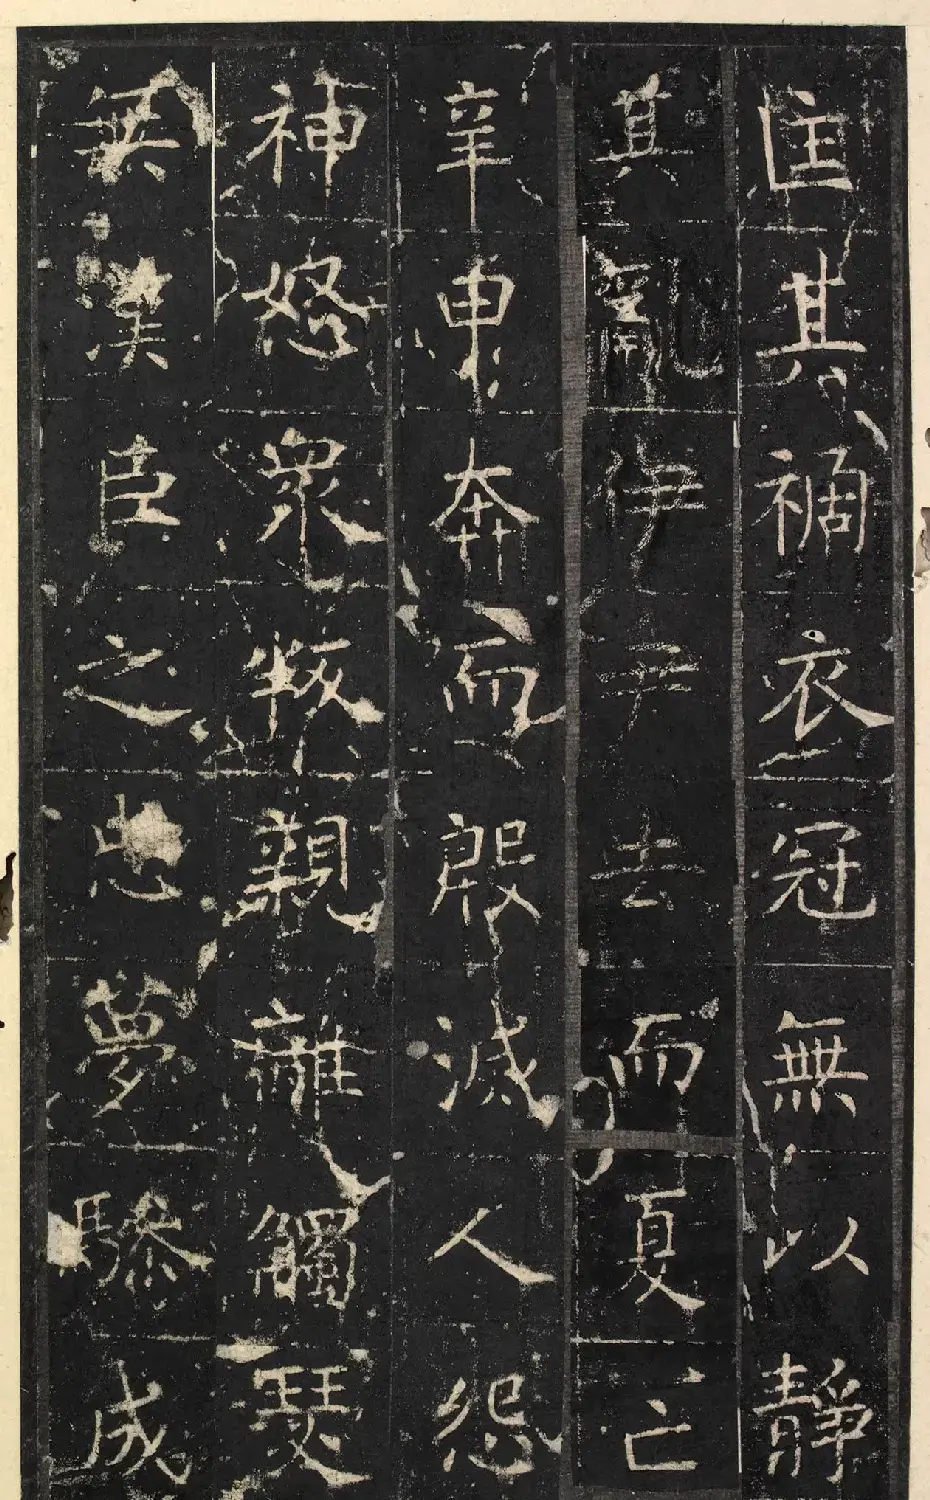 匡其禍衣冠無以靜
其亂伊尹去而夏亡
辛甲奔而殷滅人怨
神怒眾叛親離觸瑟
無漢臣之忠夢驂成